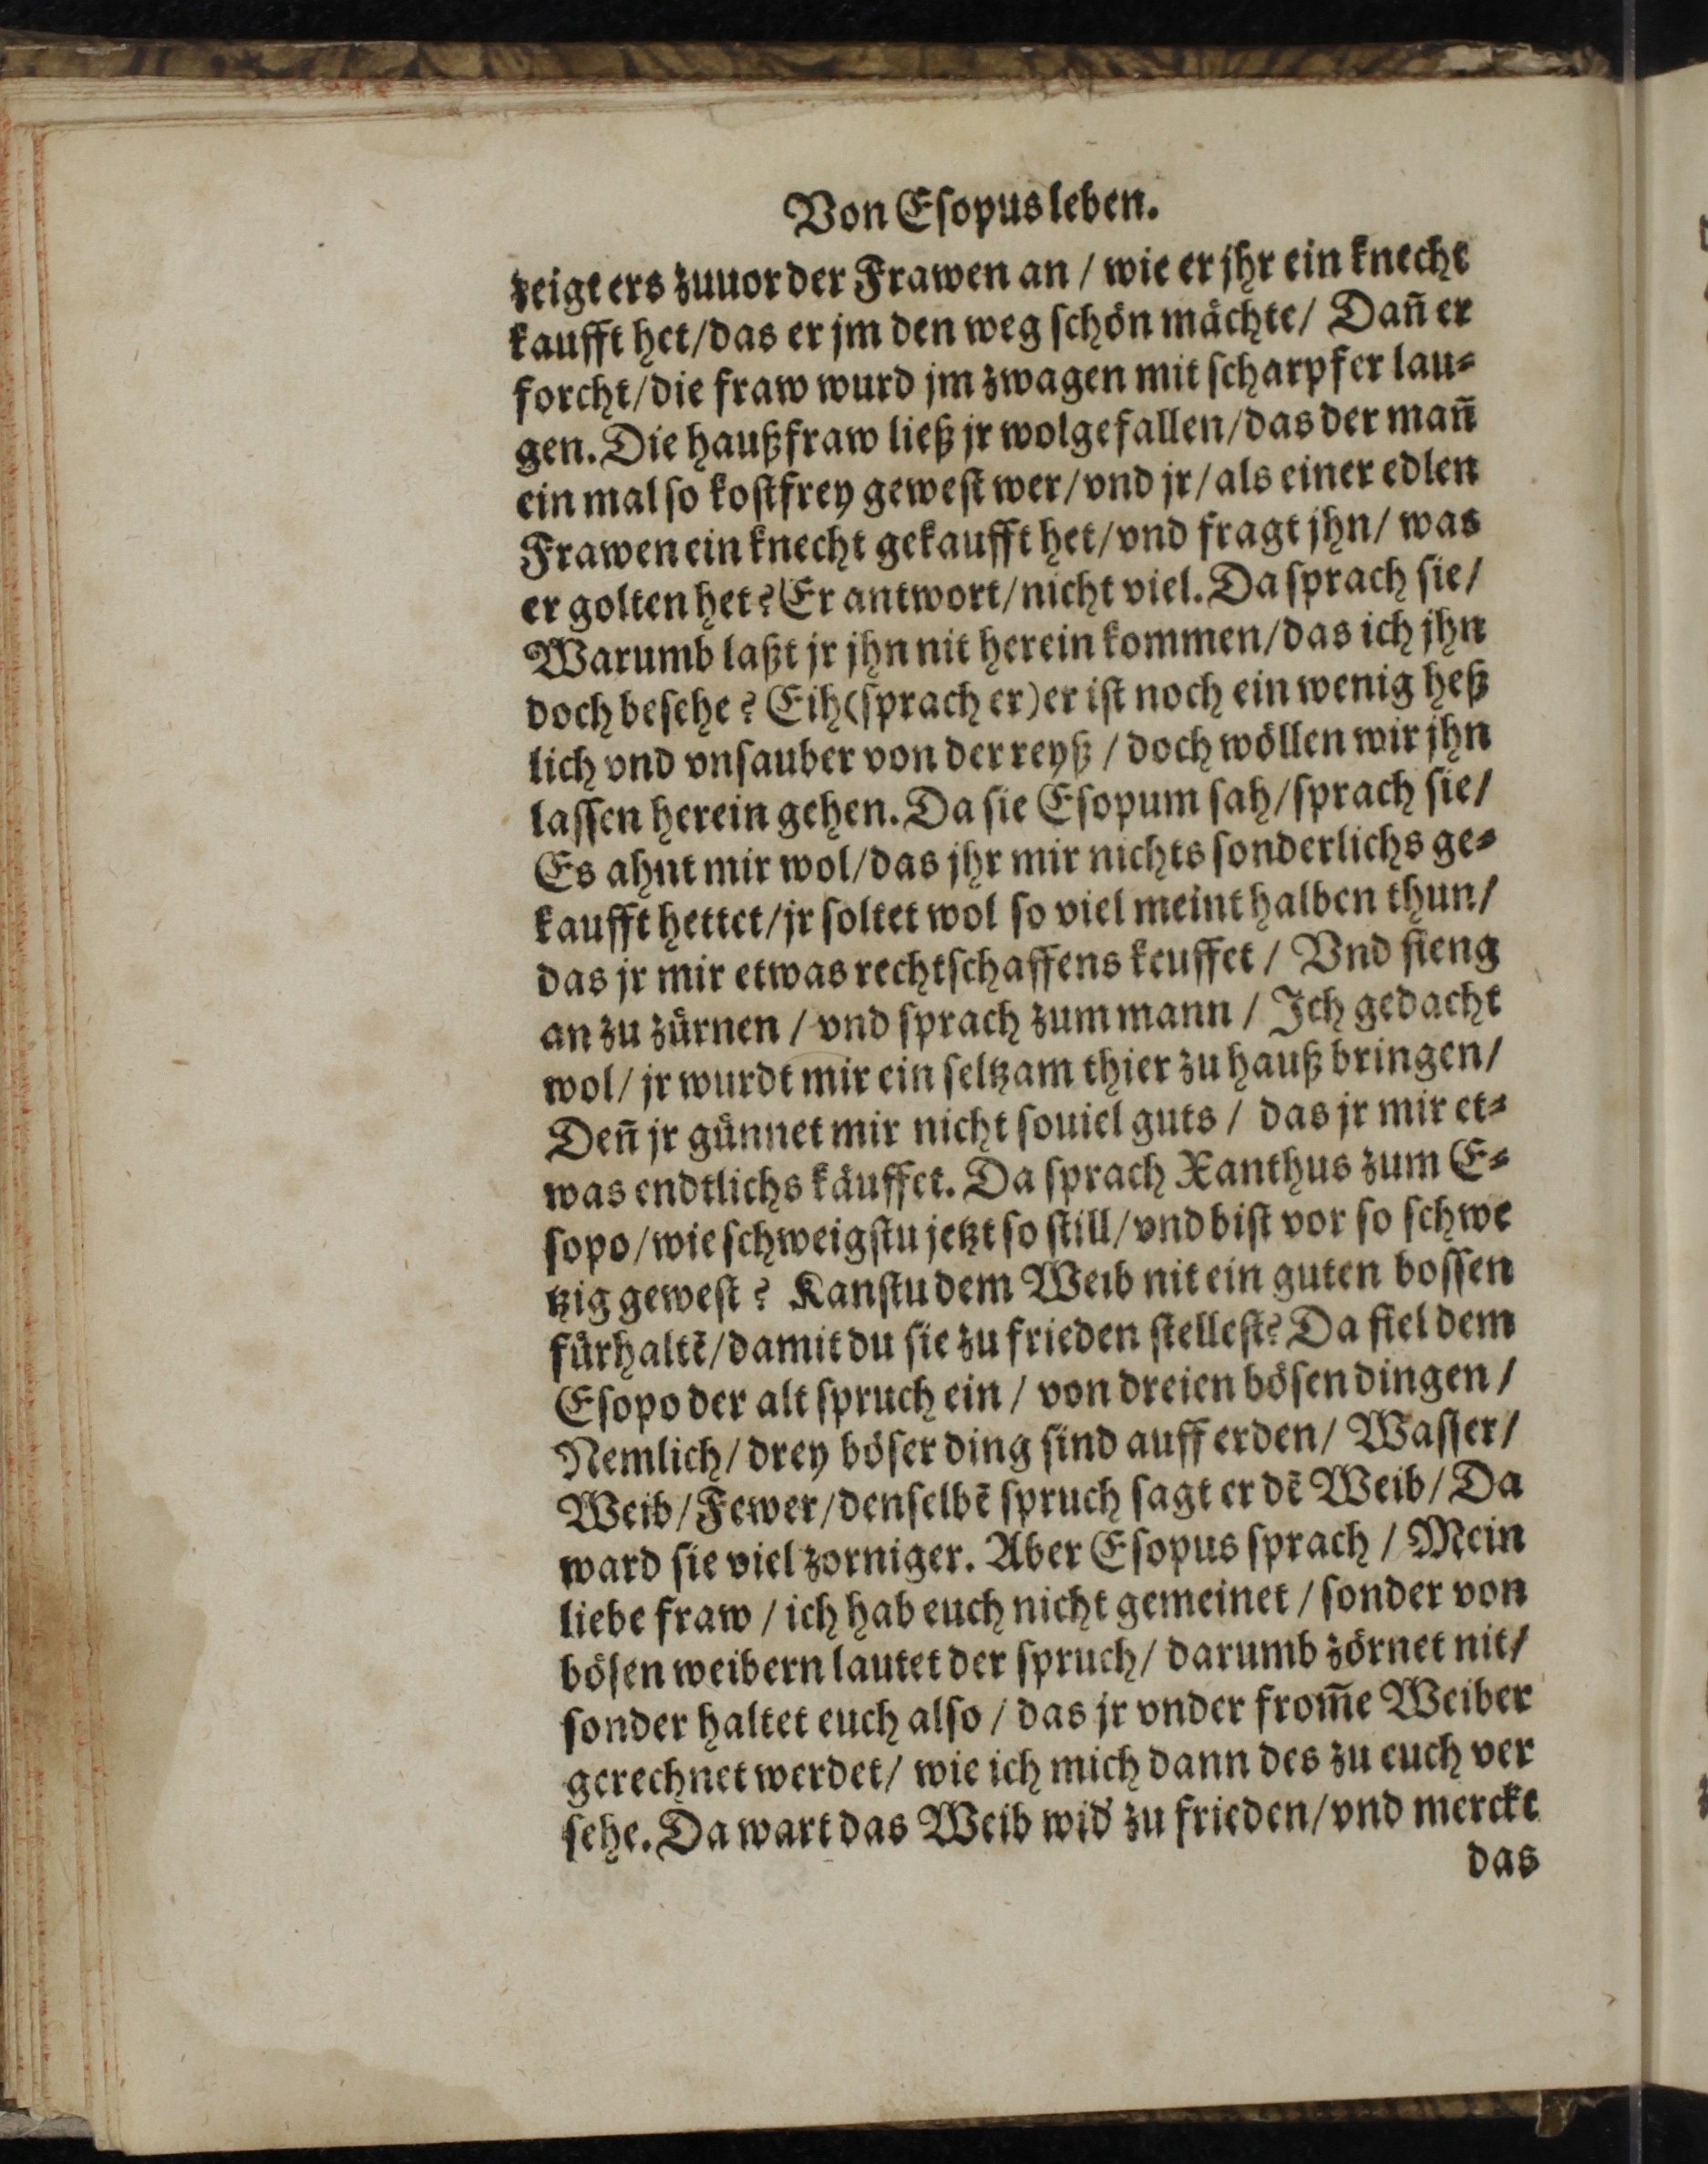 Von Eſopus leben.
zeigt ers zuuor der Frawen an / wie er jhr ein knecht
kaufft het/das er jm den weg ſchön mächte/ Dañ er
forcht/die fraw wurd jm zwagen mit ſcharpfer lau⸗
gen. Die haußfraw ließ jr wolgefallen/das der mañ
ein mal ſo koſtfrey geweſt wer/vnd jr/als einer edlen
Frawen ein knecht gekaufft het/vnd fragt jhn/ was
er golten het? Er antwort/nicht viel. Da ſprach ſie/
Warumb laßt jr jhn nit herein kommen/das ich jhn
doch beſehe? Eih(ſprach er)er iſt noch ein wenig heß
lich vnd vnſauber von der reyß / doch wöllen wir jhn
laſſen herein gehen. Da ſie Eſopum ſah/ſprach ſie/
Es ahnt mir wol/das jhr mir nichts ſonderlichs ge⸗
kaufft hettet/jr ſoltet wol ſo viel meint halben thun/
das jr mir etwas rechtſchaffens keuffet / Vnd fieng
an zu zürnen / vnd ſprach zum mann / Ich gedacht
wol/ jr wurdt mir ein ſeltzam thier zu hauß bringen/
Deñ jr günnet mir nicht ſouiel guts / das jr mir et⸗
was endtlichs käuffet. Da ſprach Xanthus zum E⸗
ſopo/wie ſchweigſtu jetzt ſo ſtill/vnd biſt vor ſo ſchwe
tzig geweſt? Kanſtu dem Weib nit ein guten boſſen
fürhaltē/damit du ſie zu frieden ſtelleſt? Da fiel dem
Eſopo der alt ſpruch ein / von dreien böſen dingen /
Nemlich/ drey böſer ding ſind auff erden/ Waſſer/
Weib/Fewer/denſelbē ſpruch ſagt er dē Weib/Da
ward ſie viel zorniger. Aber Eſopus ſprach / Mein
liebe fraw / ich hab euch nicht gemeinet / ſonder von
böſen weibern lautet der ſpruch/ darumb zörnet nit/
ſonder haltet euch alſo / das jr vnder from̄e Weiber
gerechnet werdet/ wie ich mich dann des zu euch ver
ſehe. Da wart das Weib wid' zu frieden/vnd merckt
das